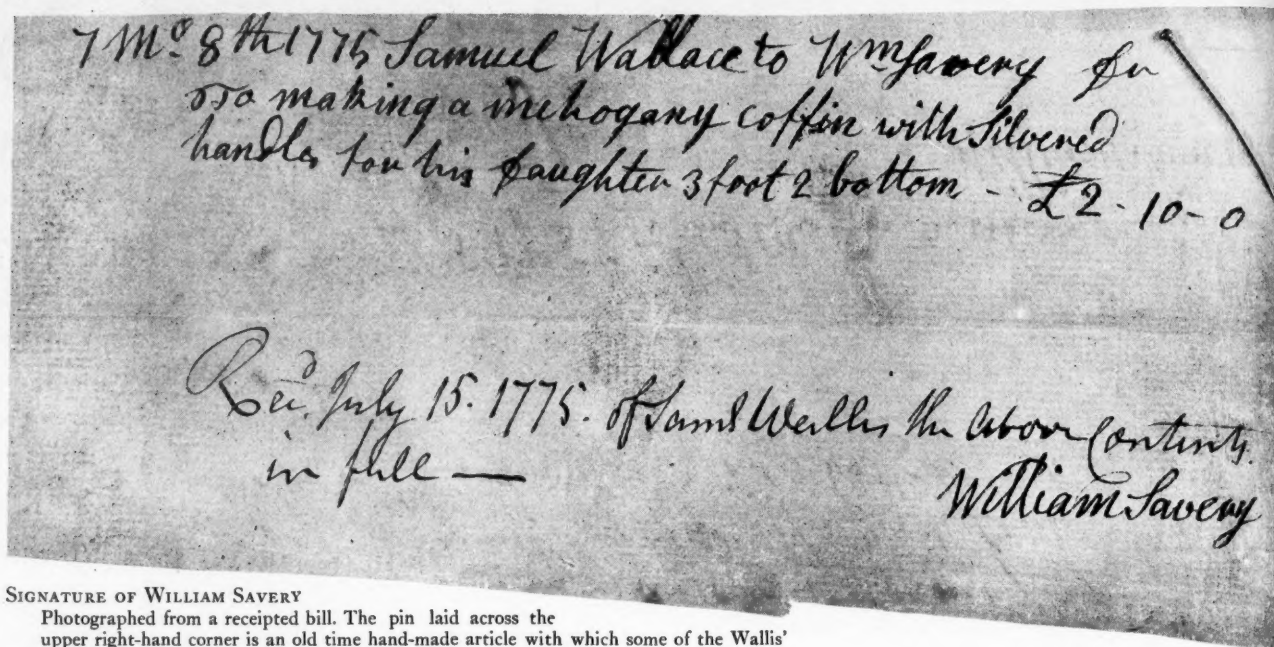 7 Mo. 8th 1775 Samuel Wallace to Wm Savery
To making a mehogany coffin with Silvered
handles for his Daughter 3 foot 2 bottom - £2-10-0
Recd. July 15. 1775. of Saml Wallis the above Contents.
in full —
William Savery
SIGNATURE OF WILLIAM SAVERY
Photographed from a receipted bill. The pin laid across the
upper right-hand corner is an old time hand-made article with which some of the Wallis'